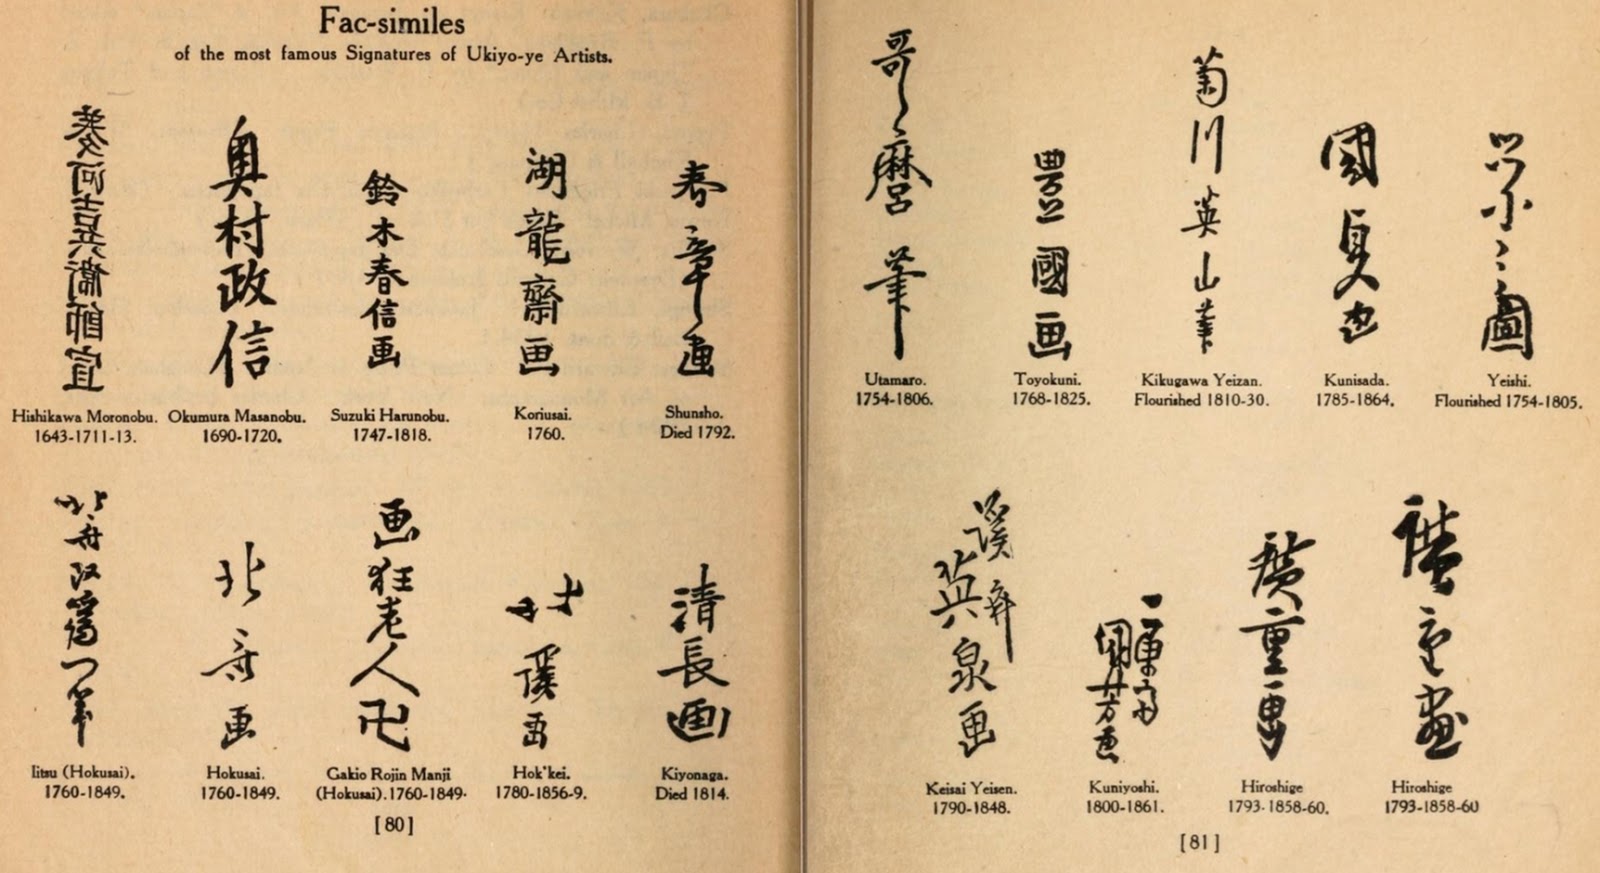 Fac-similes
of the most famous Signatures of Ukiyo-ye Artists.
菱河吉兵衛師宣
Hishikawa Moronobu.
1643-1711-13.
奥村政信
Okumura Masanobu.
1690-1720.
鈴木春信画
Suzuki Harunobu.
1747-1818.
湖龍齋画
Koriusai.
1760.
春章画
Shunsho.
Died 1792.
北斎改為一筆
Iitsu (Hokusai).
1760-1849.
北斎画
Hokusai.
1760-1849.
画狂老人卍
Gakio Rojin Manji
(Hokusai).1760-1849.
北溪画
Hok'kei.
1780-1856-9.
清長画
Kiyonaga.
Died 1814.
[80]
哥麿筆
Utamaro.
1754-1806.
豊國画
Toyokuni.
1768-1825.
菊川英山筆
Kikugawa Yeizan.
Flourished 1810-30.
國貞画
Kunisada.
1785-1864.
栄之圖
Yeishi.
Flourished 1754-1805.
溪斎英泉画
Keisai Yeisen.
1790-1848.
一勇斎國芳画
Kuniyoshi.
1800-1861.
廣重画
Hiroshige
1793-1858-60.
廣重画
Hiroshige
1793-1858-60
[81]